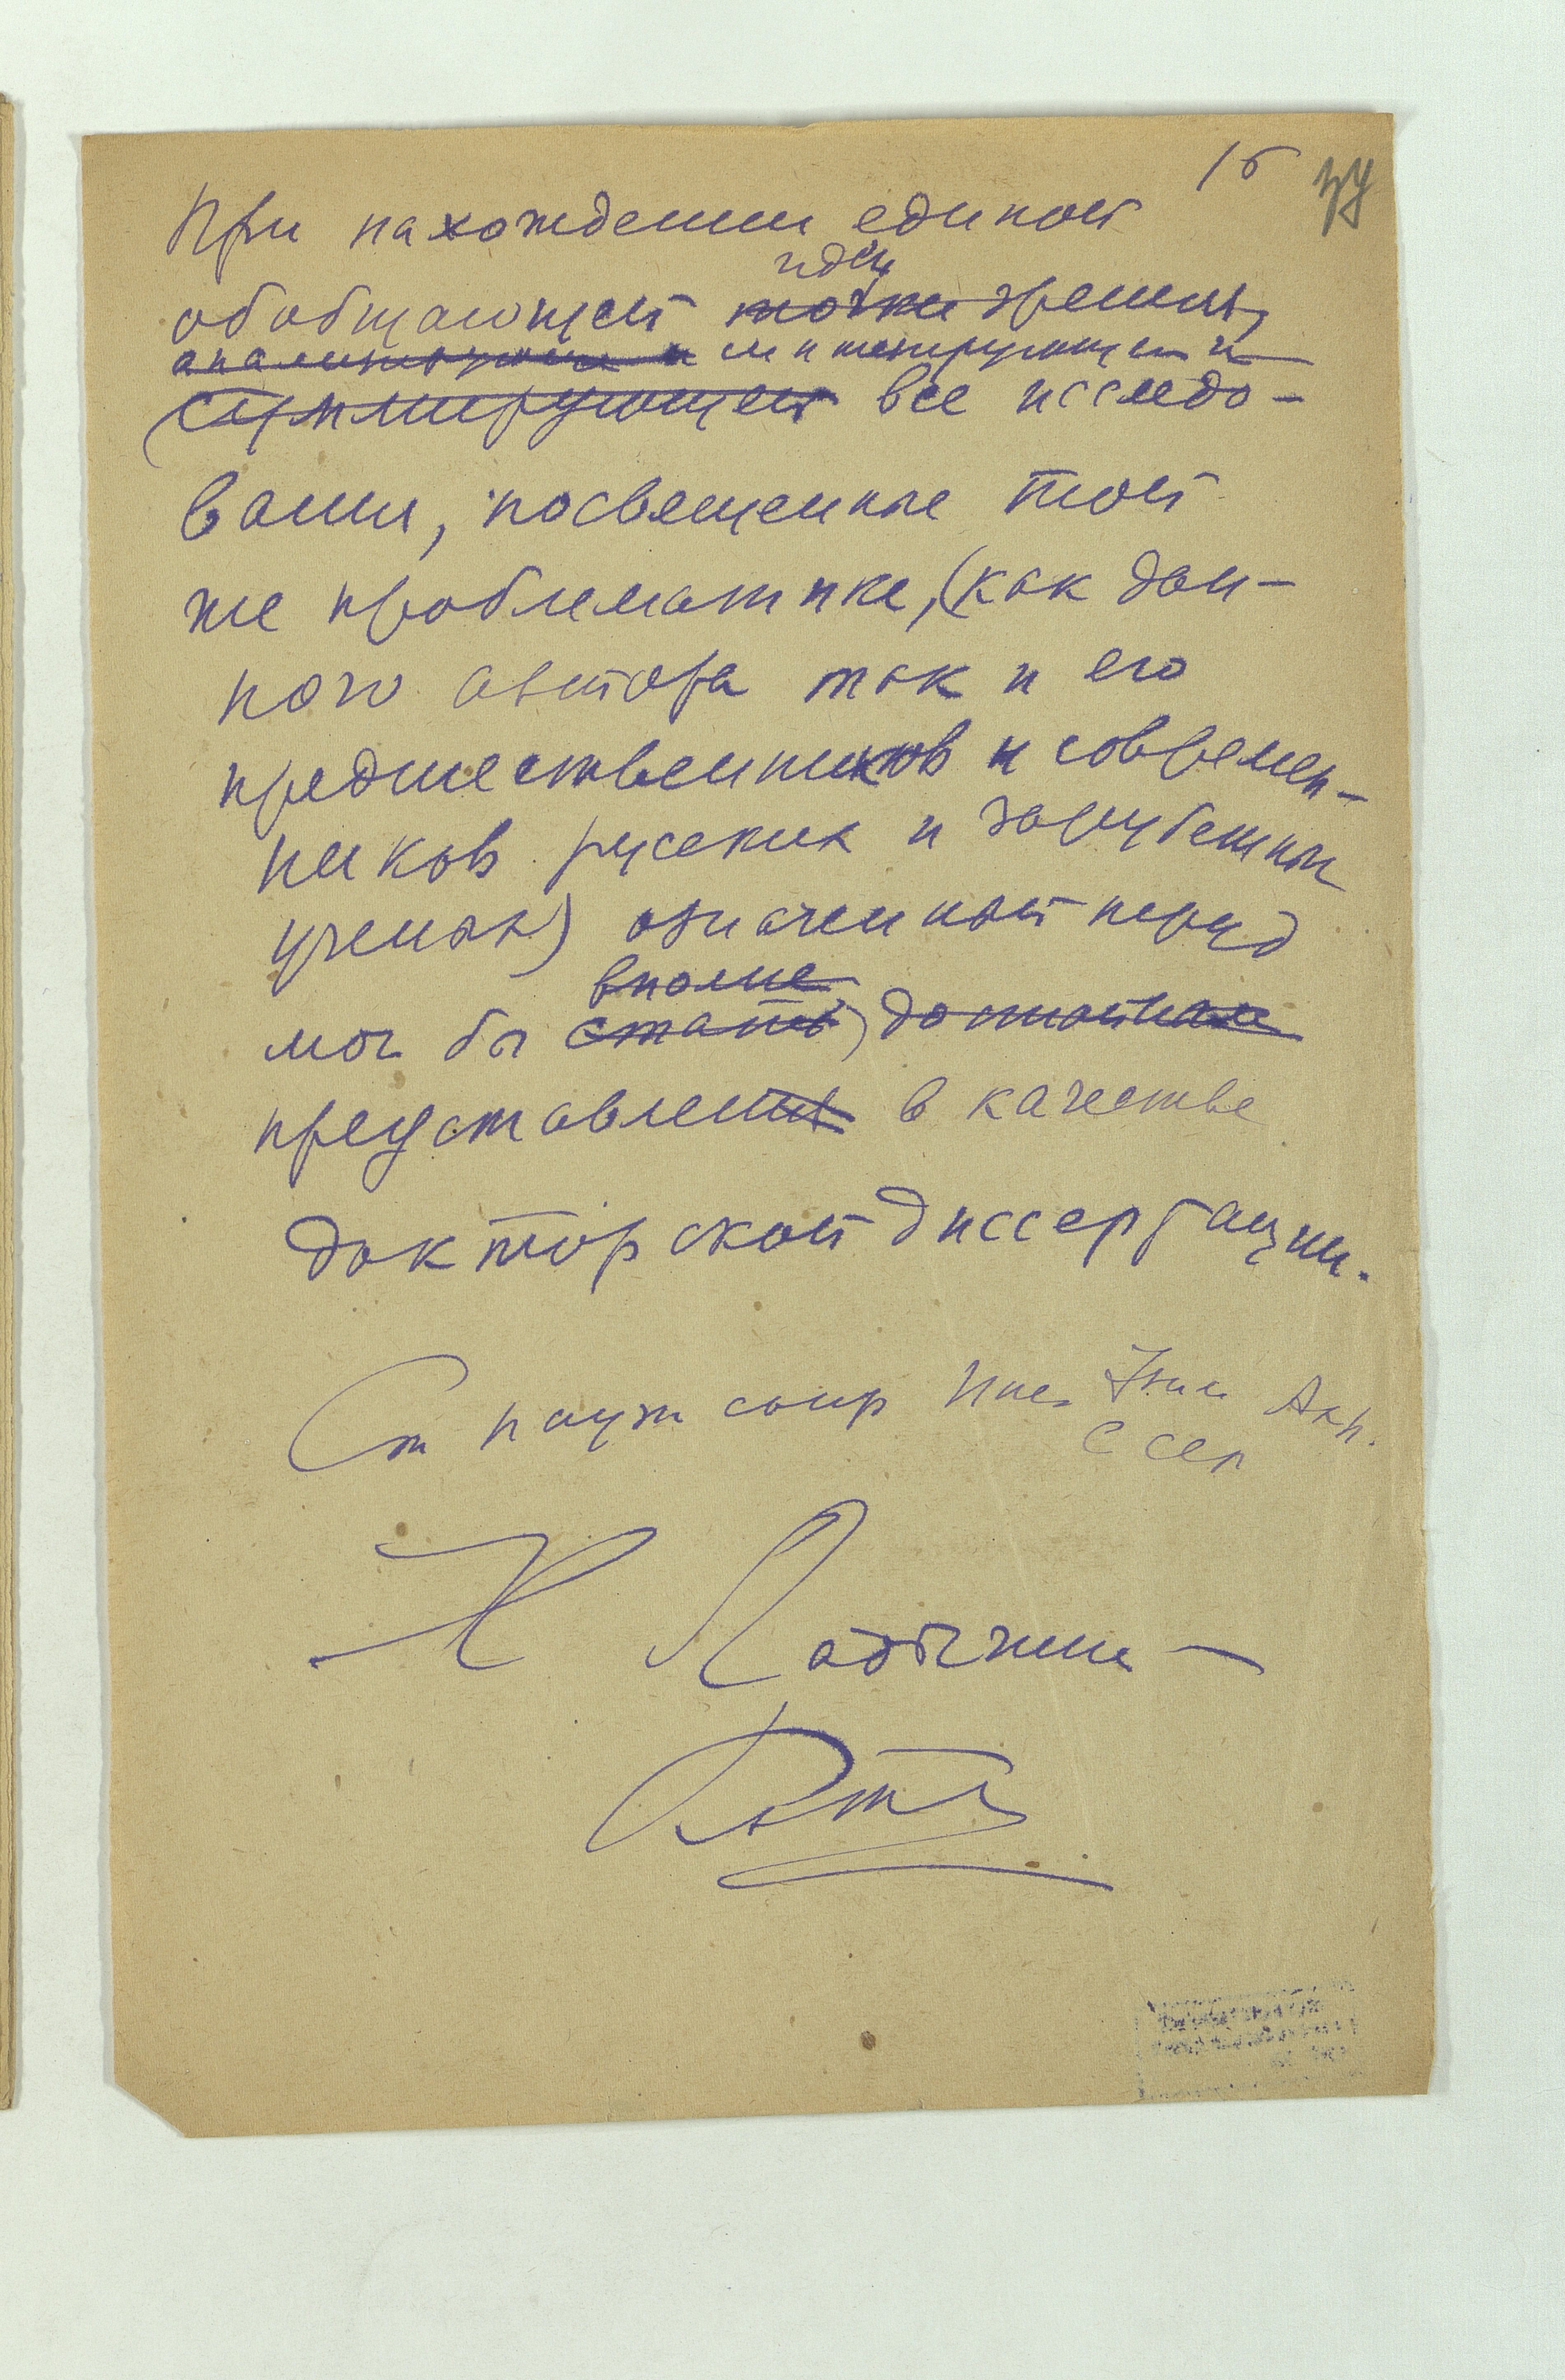 15
При нахождении единой
идеи
обобщающей точки зрения,
анализирующей и синтезирующей и
суммирующей все исследо-
вания, посвященные той
же проблематике, (как дан-
ного автора так и его
предшественников и современ-
ников русских и зарубежных
ученых) означенный период
вполне
мог бы стать,
представлен в качестве
докторской диссертации.
Ст научн сотр Инс Этн Акн.
СССР